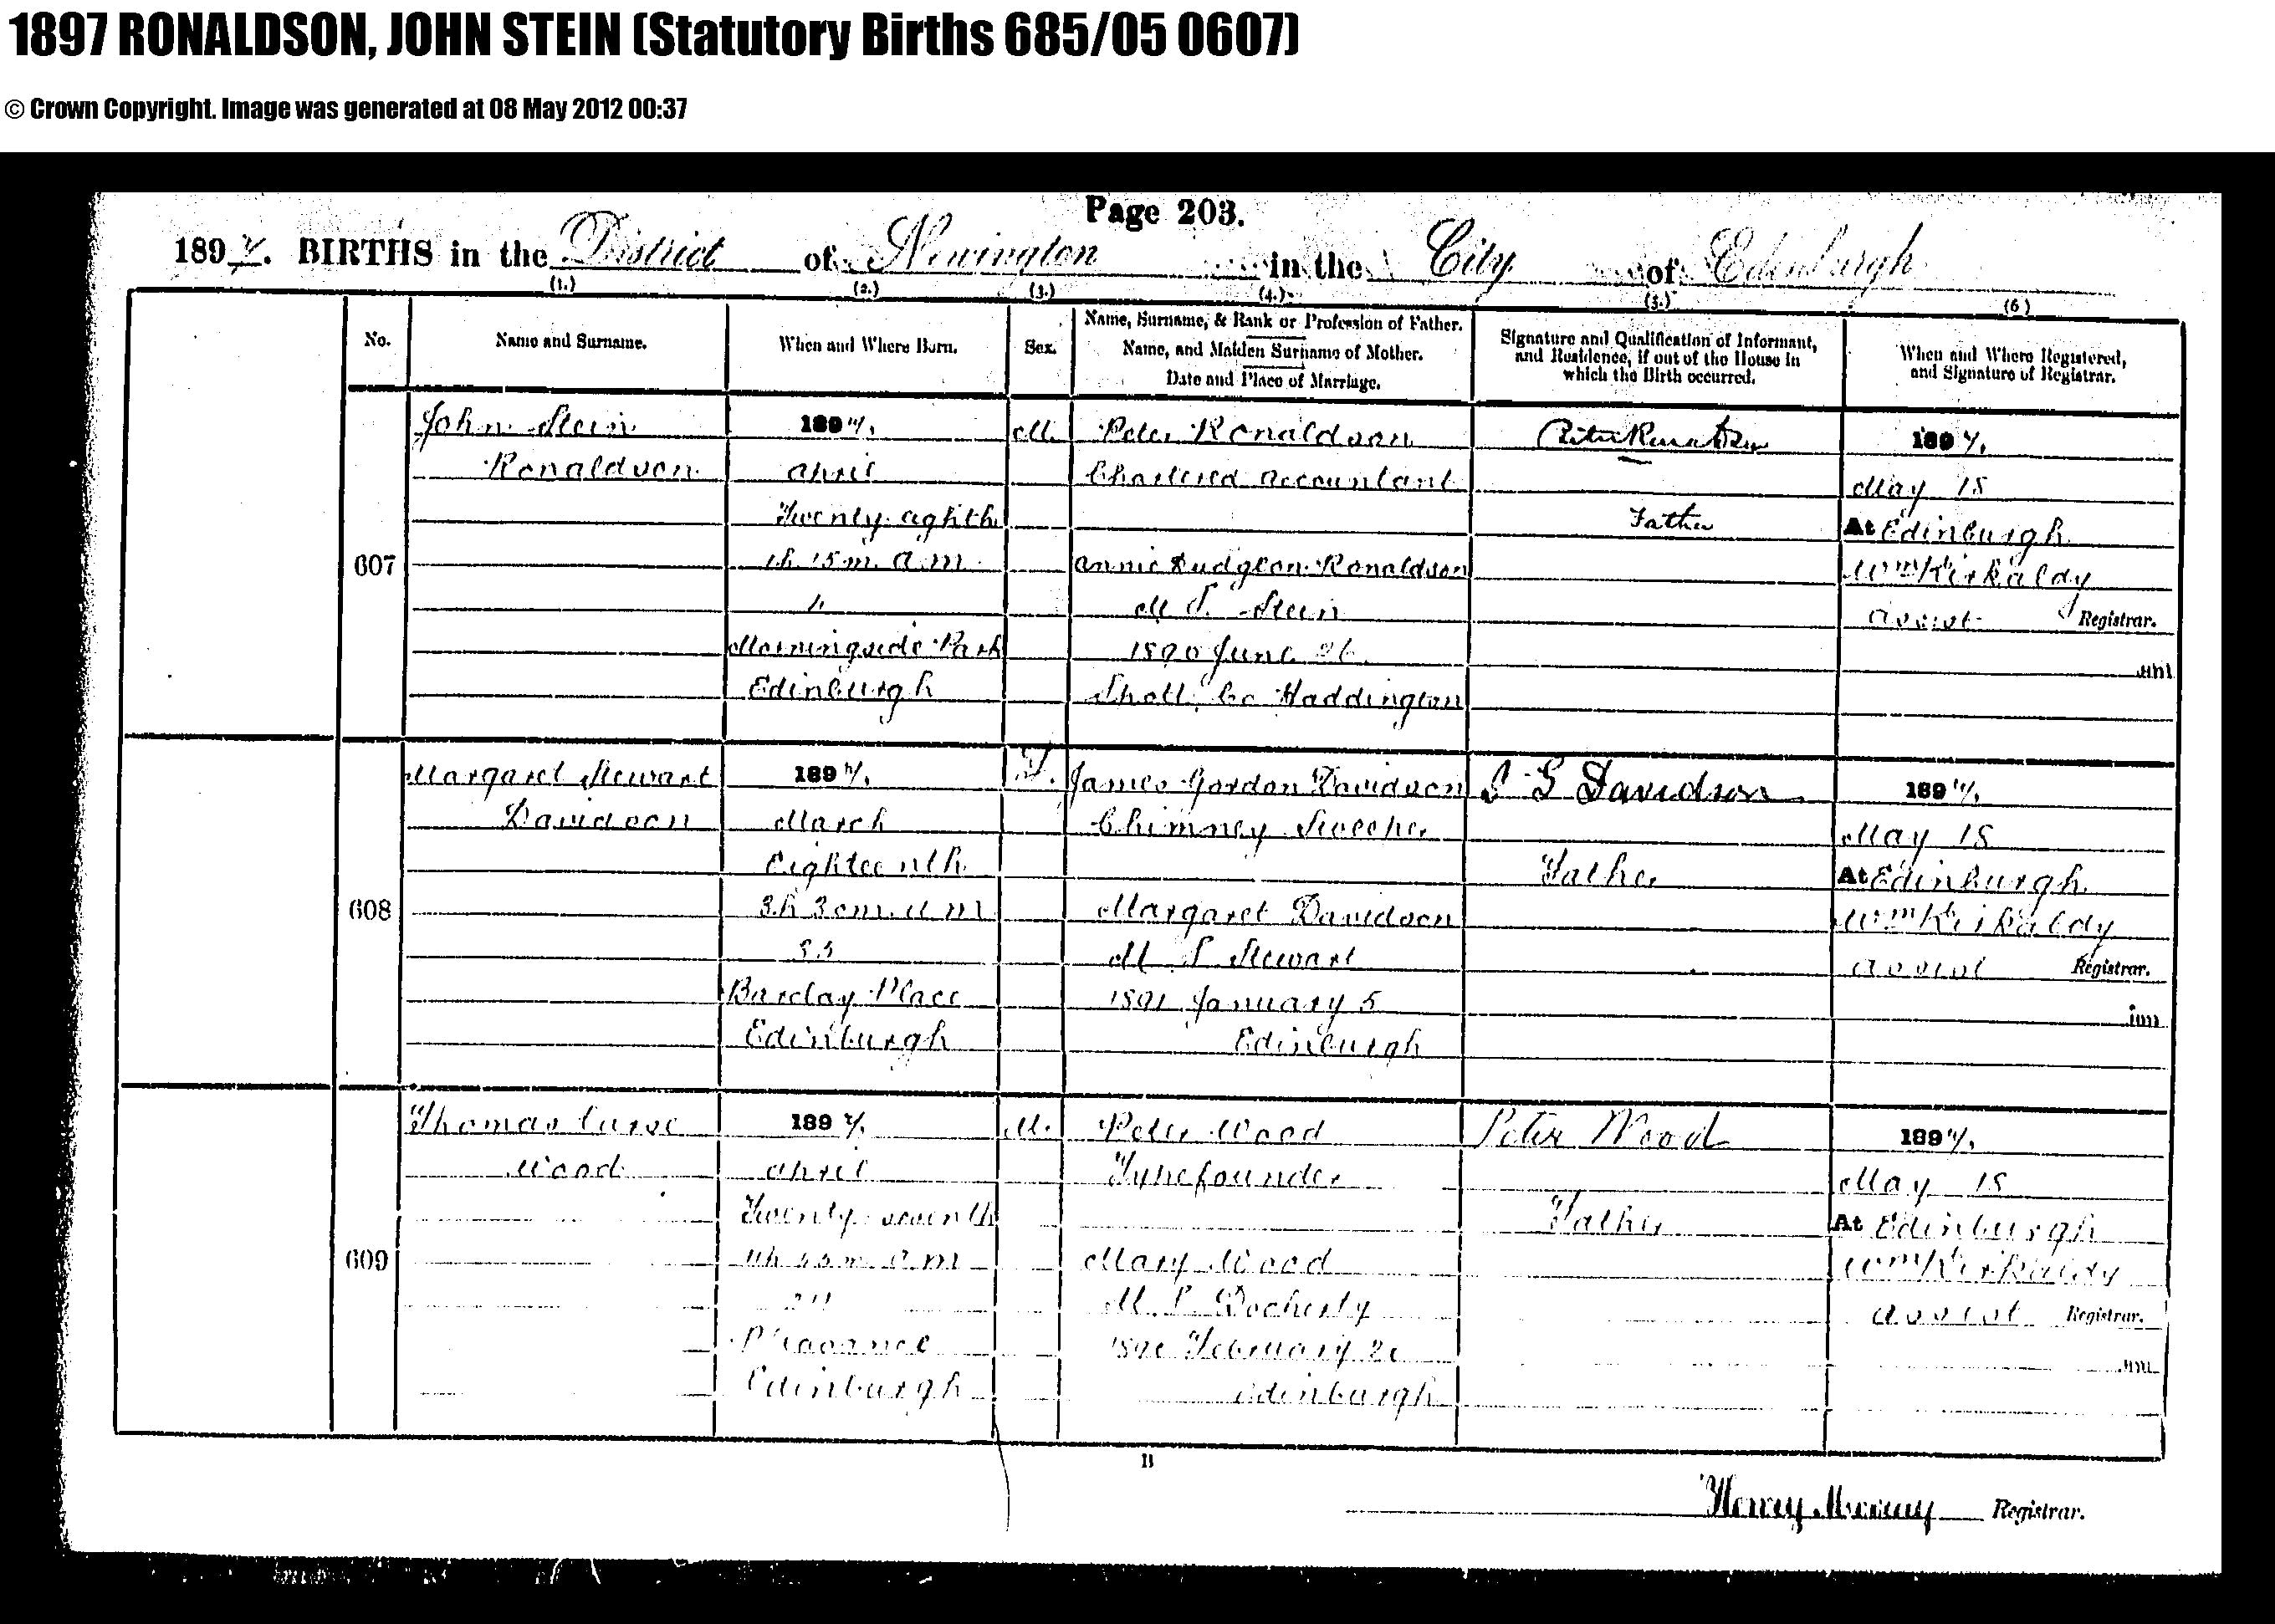 1897 RONALDSON, JOHN STEIN (Statutory Births 685/05 0607)
© Crown Copyright. Image was generated at 08 May 2012 00:37
Page 203.
1897. BIRTHS in the District of Newington in the City of Edinburgh
(1.) (2.) (3.) (4.) (5.) (6)
No.
Name and Surname.
When and Where Born.
Sex.
Name, Surname, & Rank or Profession of Father.
Name, and Maiden Surname of Mother.
Date and Place of Marriage.
Signature and Qualification of Informant,
and Residence, if out of the House in
which the Birth occurred.
When and Where Registered,
and Signature of Registrar.
607
John Stein
Ronaldson
1897.
April
Twenty eighth
1h 15m. A.M.
Morningside Park
Edinburgh
M.
Peter Ronaldson
Chartered Accountant
Annie Dudgeon Ronaldson
M.S. Stein
1890 June 26
Co Haddington
Peter Ronaldson
Father
1897.
May 18
At Edinburgh
Wm Kirkaldy
Assist Registrar.
608
Margaret Stewart
Davidson
1897.
March
Eighteenth
3h 30m. A M
33
Barclay Place
Edinburgh
F.
James Gordon Davidson
Chimney Sweeper
Margaret Davidson
M S Stewart
1891 January 5
Edinburgh
J G Davidson
Father
1897.
May 18
At Edinburgh
Wm Kirkaldy
Assist Registrar.
609
Thomas
Wood
1897.
April
Twenty seventh
A.M
Pleasance
Edinburgh
M.
Peter Wood
Typefounder
Mary Wood
M S Docherty
February
Edinburgh
Peter Wood
Father
1897.
May 18
At Edinburgh
Wm Kirkaldy
Assist Registrar.
B
Henry Murray Registrar.